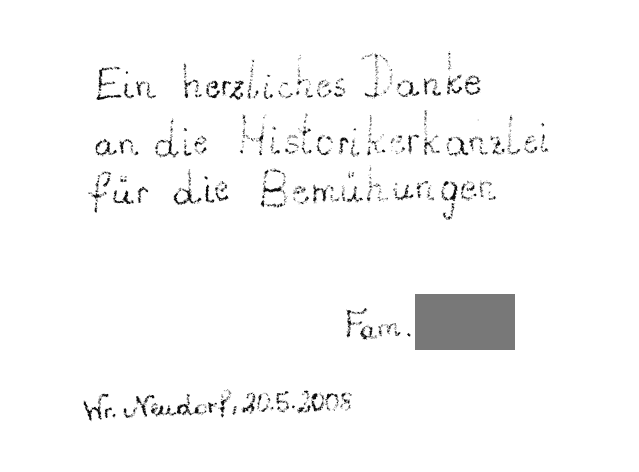 Ein herzliches Danke
an die Historikerkanzlei
für die Bemühungen
Fam.
Wr. Neudorf, 20.5.2008